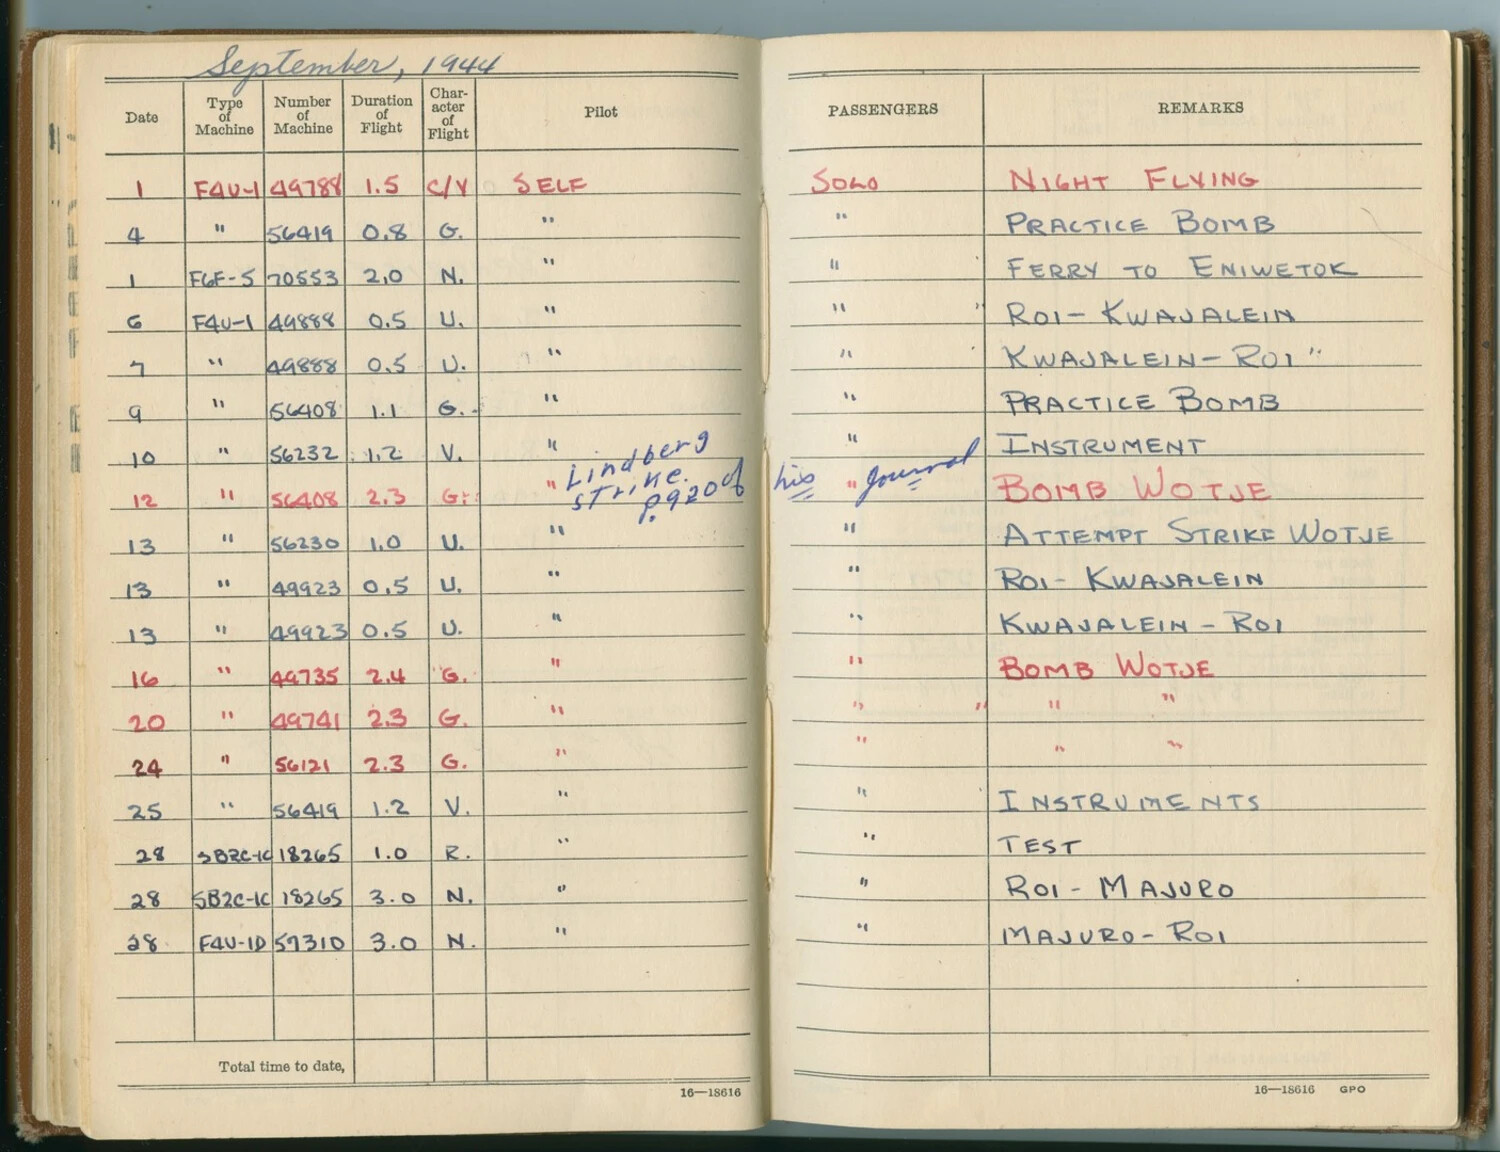 September, 1944
Date Type of Machine Number of Machine Duration of Flight Char- acter of Flight Pilot PASSENGERS REMARKS
1 F4U-1 49788 1.5 C/V SELF SOLO NIGHT FLYING
4 " 56419 0.8 G. " " PRACTICE BOMB
1 F6F-5 70553 2.0 N. " " FERRY TO ENIWETOK
6 F4U-1 49888 0.5 U. " " " ROI - KWAJALEIN
7 " 49888 0.5 U. " " KWAJALEIN - ROI "
9 " 56408 1.1 G. " " PRACTICE BOMB
10 " 56232 1.2 V. " " INSTRUMENT
12 " 56408 2.3 G. " Lindberg strike. p.920 of his " Journal BOMB WOTJE
13 " 56230 1.0 U. " " ATTEMPT STRIKE WOTJE
13 " 49923 0.5 U. " " ROI - KWAJALEIN
13 " 49923 0.5 U. " " KWAJALEIN - ROI
16 " 49735 2.4 G. " " BOMB WOTJE
20 " 49741 2.3 G. " " " " "
24 " 56121 2.3 G. " " " "
25 " 56419 1.2 V. " " INSTRUMENTS
28 SB2C-1C 18265 1.0 R. " " TEST
28 SB2C-1C 18265 3.0 N. " " ROI - MAJURO
28 F4U-1D 57310 3.0 N. " " MAJURO - ROI
Total time to date,
16—18616
16—18616 GPO